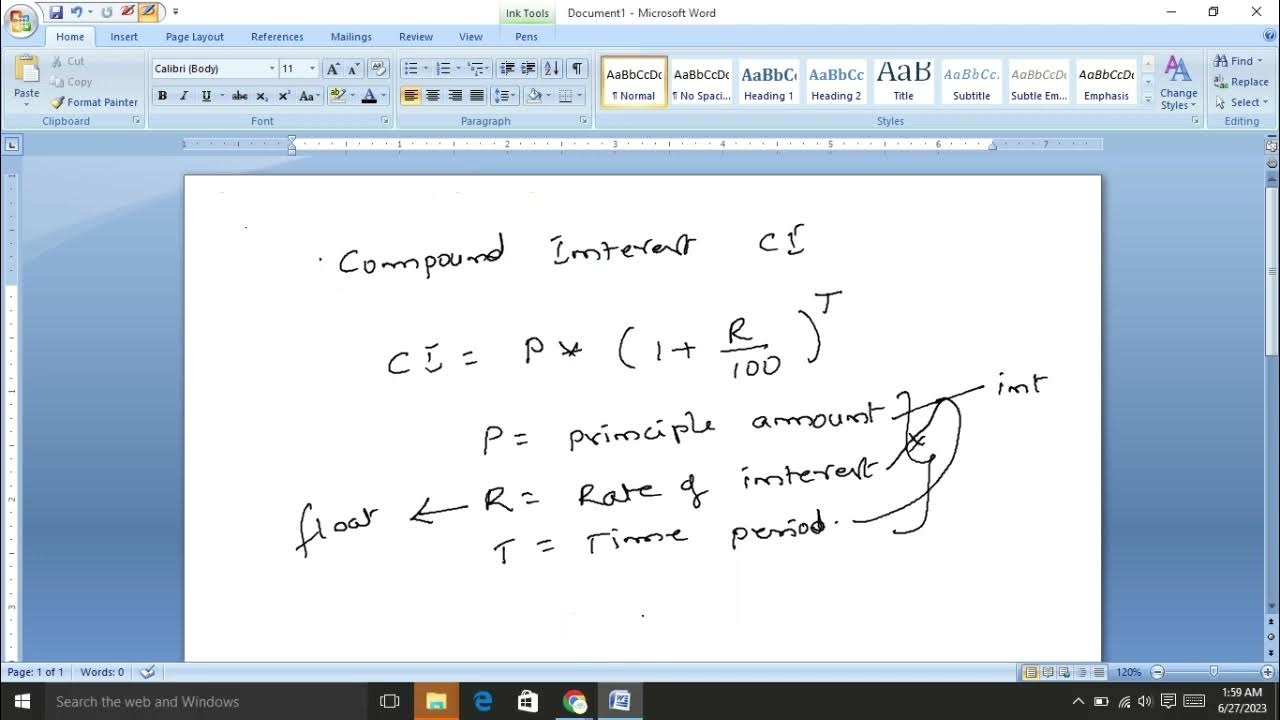 Ink Tools
Document1 - Microsoft Word
Home Insert Page Layout References Mailings Review View Pens
Paste
Cut
Copy
Format Painter
Clipboard
Calibri (Body) 11
Font
Paragraph
AaBbCcDc AaBbCcDc AaBbC AaBbCc AaB AaBbCc. AaBbCcDc AaBbCcDc
¶ Normal ¶ No Spaci... Heading 1 Heading 2 Title Subtitle Subtle Em... Emphasis
Change Styles
Styles
Find
Replace
Select
Editing
1 1 2 3 4 5 6 7
Compound Interest CI
CI = P * (1 + R/100)^T
P = principle amount int
R = Rate of interest
float
T = Time period.
Page: 1 of 1 Words: 0 120%
Search the web and Windows
1:59 AM
6/27/2023